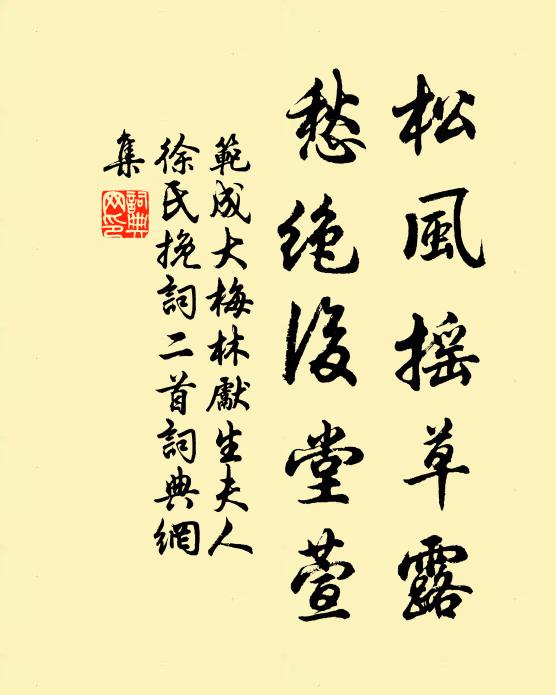 松風摇草露
愁絶後堂萱
範成大梅林獻生夫人
徐氏挽詞二首詞典網
集
詞典网印